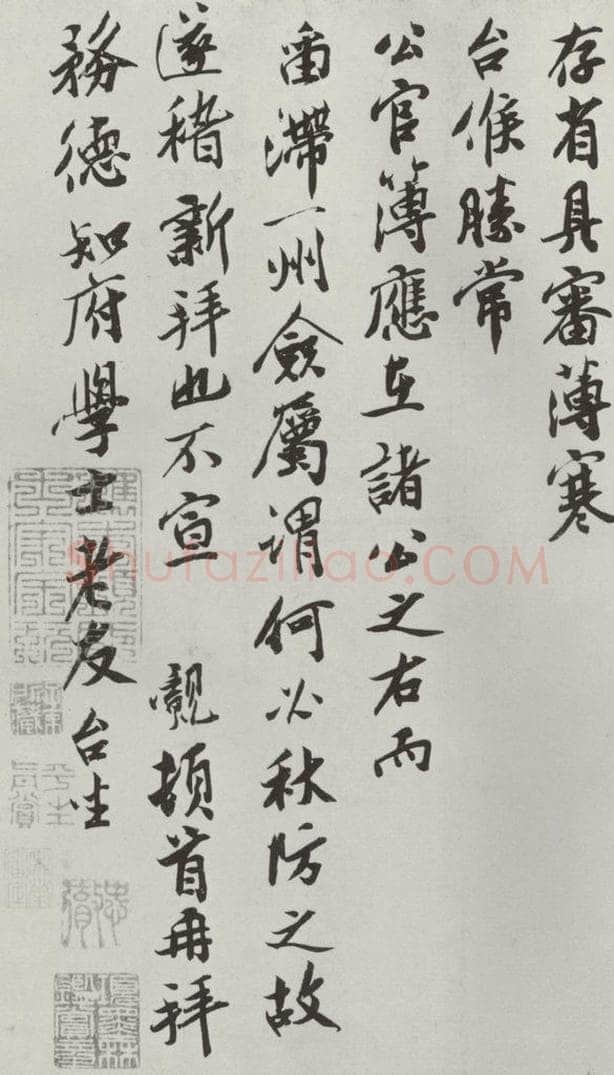 存省具審薄寒
台候勝常
公官簿應在諸公之右而
留滯一州僉屬謂何必秋防之故
遂稽新拜也不宣 覿頓首再拜
務德知府學士老友台坐
Shufaziliao.COM